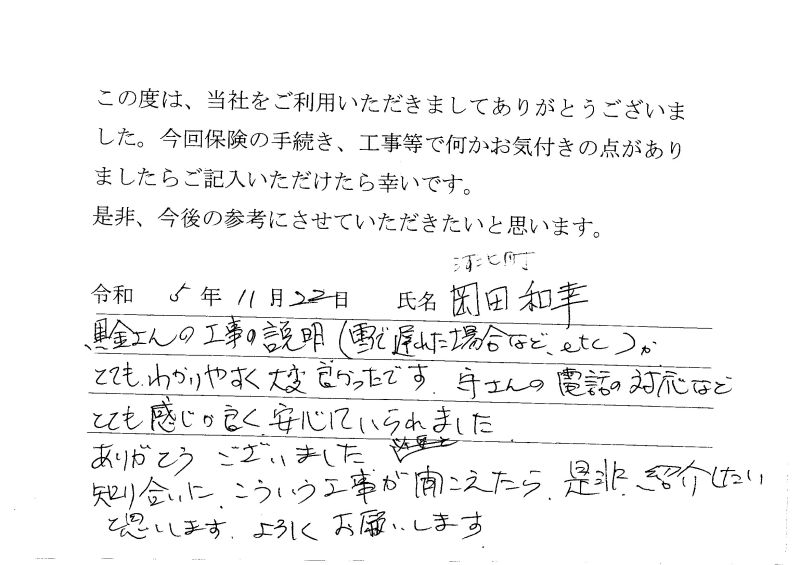 この度は、当社をご利用いただきましてありがとうございま
した。今回保険の手続き、工事等で何かお気付きの点があり
ましたらご記入いただけたら幸いです。
是非、今後の参考にさせていただきたいと思います。
河北町
令和 5 年 11 月 22 日 氏名 岡田和幸
さんの工事の説明(雪で遅れた場合など、etc)が
とてもわかりやすく大変良かったです。守さんの電話の対応など
とても感じが良く安心していられました
ありがとうございました
知り合いに、こういう工事が聞こえたら、是非、紹介したい
と思いします。よろしくお願いします